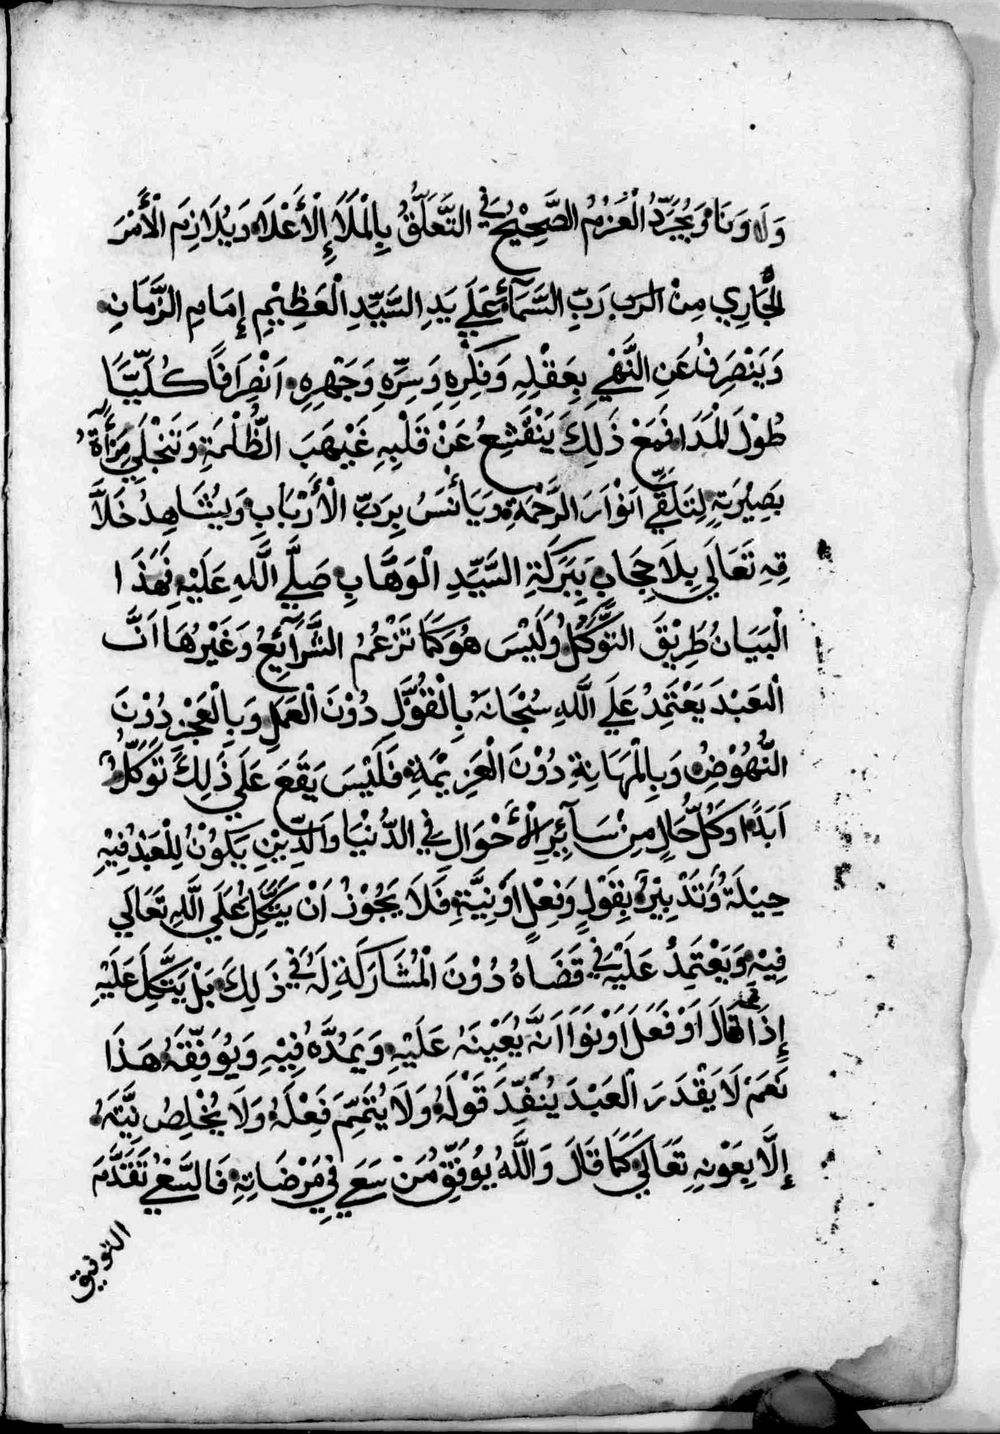 وَلَا وَنَا وَيُجَرِّدُ الْعَزْمُ الصَّحِيْحُ فِي التَّعَلُّقُ بِالْمَلَاَ إِلْأَعْلَاه وَيُلَازِمَ الْأَمْرَ
الْجَارِي مِنْ الرب رَبِّ السَّمَآءِ عَلَي يَدِ السَّيِّدِ الْعَظِيْمِ إِمَامِ الزَّمَانِ
وَيَنْصَرِفُ عَنِ النَّهْيِ بِعَقْلِهِ وَفِكْرِهِ وَسِرِّهِ وَجَهْرِهِ اَنْصِرَافًا كُلِّيًّا
طُوْلَ الْمَدَا فَمَعْ ذَلِكَ يَنْقَشِعُ عَنْ قَلْبِهِ غَيْهَبَ الظُّلْمَةِ وَتَنْجَلِي مَرْأَةُ
بَصِيْرَتِهِ لِتَلَقِّي اَنْوَارَ الرَّحْمَةِ وَيَأْنَسُ بِرَبِّ الْأَرْبَابِ وَيُشَاهِدُ خَلَّا
قِهِ تَعَالَي بِلَا حِجَابٍ بِبَرَكَةِ السَّيِّدِ الْوَهَّابِ صَلَّي اللَّهِ عَلَيْهِ فَهَذَا
الْبَيَانُ طَرِيْقَ التَّوَكُّلُ وَلَيْسَ هُوَ كَمَا تَزْعُمُ الشَّرَآئِعُ وَغَيْرُهَا اَنَّ
الْعَبْدَ يَعْتَمِدُ عَلَي اللَّهِ سُبْحَانَهُ بِالْقَوْلِ دُوْنَ الْعَمَلِ وَبِالْعَجْزِ دُوْنَ
النُّهُوْضُ وَبِالْمَهَانِةِ دُوْنَ الْعَزِيْمَةِ فَلَيْسَ يَقَعَ عَلَي ذَلِكَ تَوَكُّلُ
اَبَدًا وَكُلُّ حَالٍ مِنْ سَآئِرِ الْأَحْوَالِ فِي الدُّنْيَا وَالدِّيْنِ يَكُوْنُ لِلْعَبْدِ فِيْهِ
حِيْلَةُ وَتَدْبِيْرُ بِقَوْلٍ وَفِعْلٍ اَوْ نِيَّةٍ فَلَا يَجُوْزُ اَنْ يَتَّكِلُ عَلَي اللَّهِ تَعَالَي
فِيْهِ وَيَعْتَمِدُ عَلَيْهِ فِي قَضَاهُ دُوْنَ الْمُشَارَكَةِ لَهُ فِي ذَلِكَ بَلْ يَتَّكِلَ عَلَيْهِ
إِذَا قَالَ اَوْ فَعَلَ اَوْ نَوَا اَنَّهُ يُعَيْنَهُ عَلَيْهِ وَيَمُدَّهُ فِيْهِ وَيُوَفِّقَهُ هَذَا
نَعَمْ لَا يَقْدَرَ الْعَبْدَ يُنَفِّدَ قَوْلَهُ وَلَا يُتَمِّمَ فَعْلَهُ وَلَا يُخْلِصُ نِيَّتَهُ
إِلَّا بِعَوْنِهِ تَعَالَي كَمَا قَالَ وَاللَّهُ يُوَفِّقُ مَنْ سَعَي فِي مَرْضَاتِهِ فَالسَّعْيُ تَقَدَّمَ
التوفيق